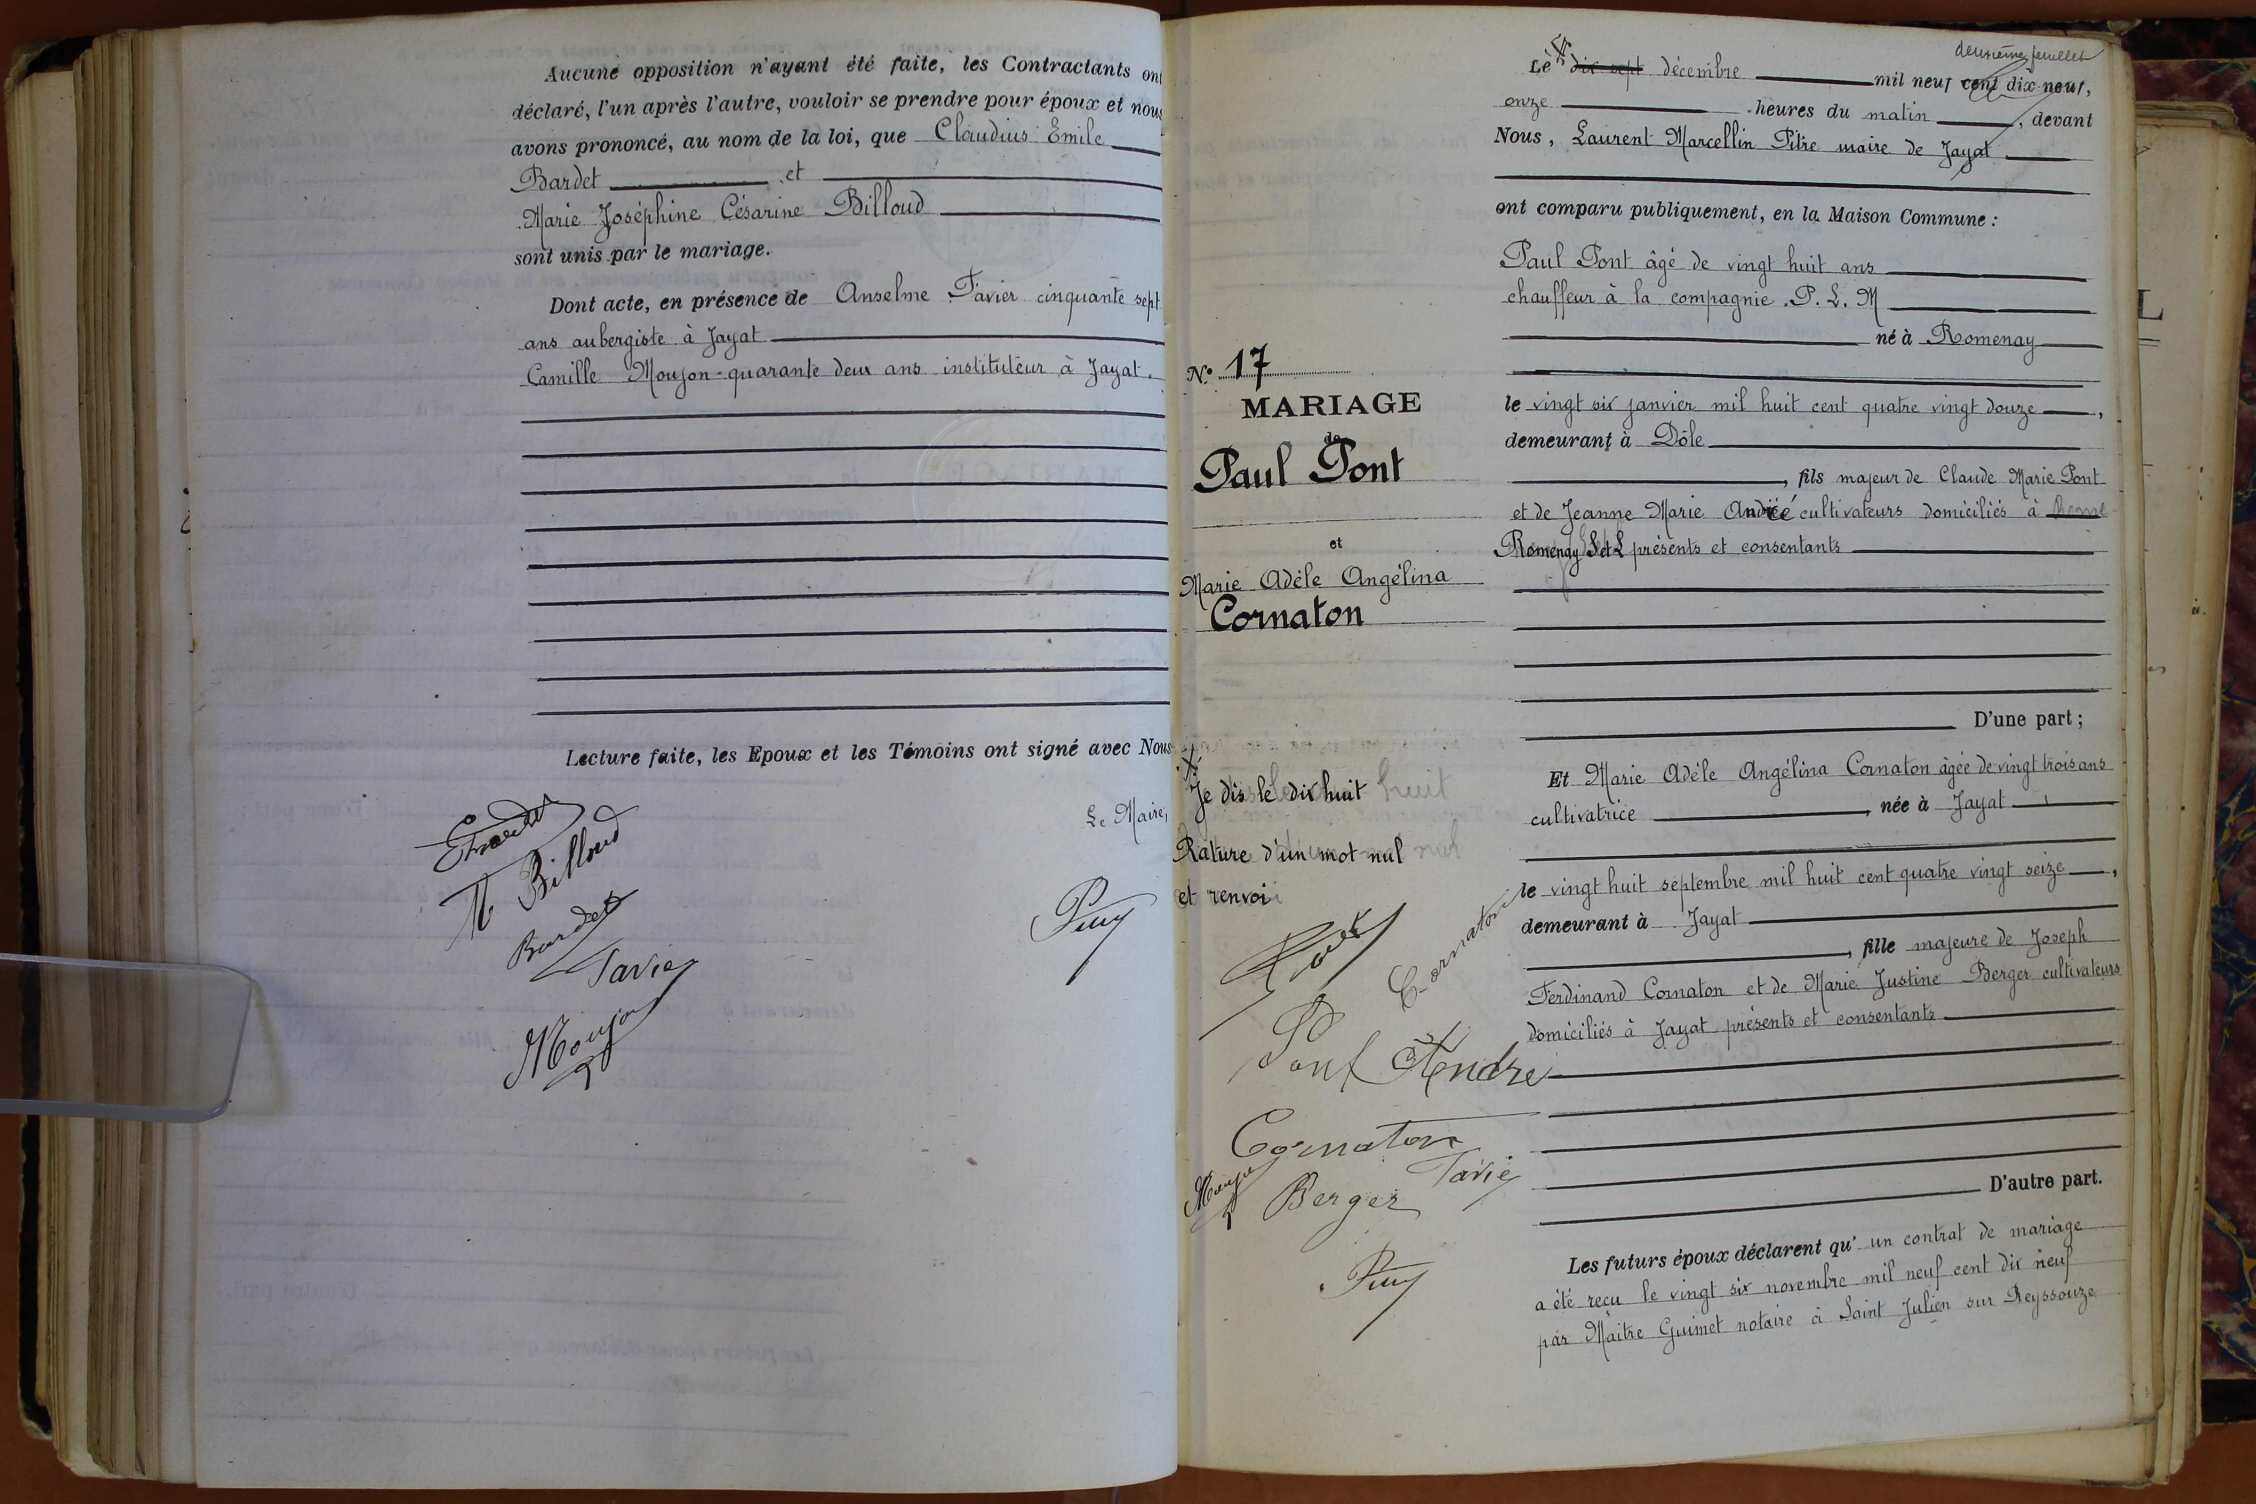 Aucune opposition n'ayant été faite, les Contractants ont
déclaré, l'un après l'autre, vouloir se prendre pour époux et nous
avons prononcé, au nom de la loi, que Claudius Emile
Bardet et
Marie Joséphine Césarine Billoud
sont unis par le mariage.
Dont acte, en présence de Anselme Favier cinquante sept
ans aubergiste à Jayat
Camille Moujon quarante deux ans instituteur à Jayat.
Lecture faite, les Epoux et les Témoins ont signé avec Nous
Le Maire,
EBardet
M Billoud
Bardet
Favier
Moujon
deuxième feuillet
Le dix sept décembre mil neuf cent dix-neuf,
onze heures du matin, devant
Nous, Laurent Marcellin Pitre maire de Jayat
ont comparu publiquement, en la Maison Commune :
Paul Pont âgé de vingt huit ans
chauffeur à la compagnie P. L. M
né à Romenay
le vingt six janvier mil huit cent quatre vingt douze,
demeurant à Dôle
, fils majeur de Claude Marie Pont
et de Jeanne Marie André cultivateurs domiciliés à
Romenay S et L présents et consentants
D'une part ;
Et Marie Adèle Angélina Cornaton âgée de vingt trois ans
cultivatrice, née à Jayat
le vingt huit septembre mil huit cent quatre vingt seize,
demeurant à Jayat
, fille majeure de Joseph
Ferdinand Cornaton et de Marie Justine Berger cultivateurs
domiciliés à Jayat présents et consentants
D'autre part.
Les futurs époux déclarent qu' un contrat de mariage
a été reçu le vingt six novembre mil neuf cent dix neuf
par Maître Guimet notaire à Saint Julien sur Reyssouze
N.° 17
MARIAGE
de
Paul Pont
et
Marie Adèle Angélina
Cornaton
Je dis le dix huit
Rature d'un mot nul
et renvoi
Pont
Cornaton
Pont André
Cornaton
Favier
Moujon
Berger